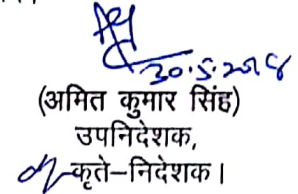 30.5.2018
(अमित कुमार सिंह)
उपनिदेशक,
कृते–निदेशक।